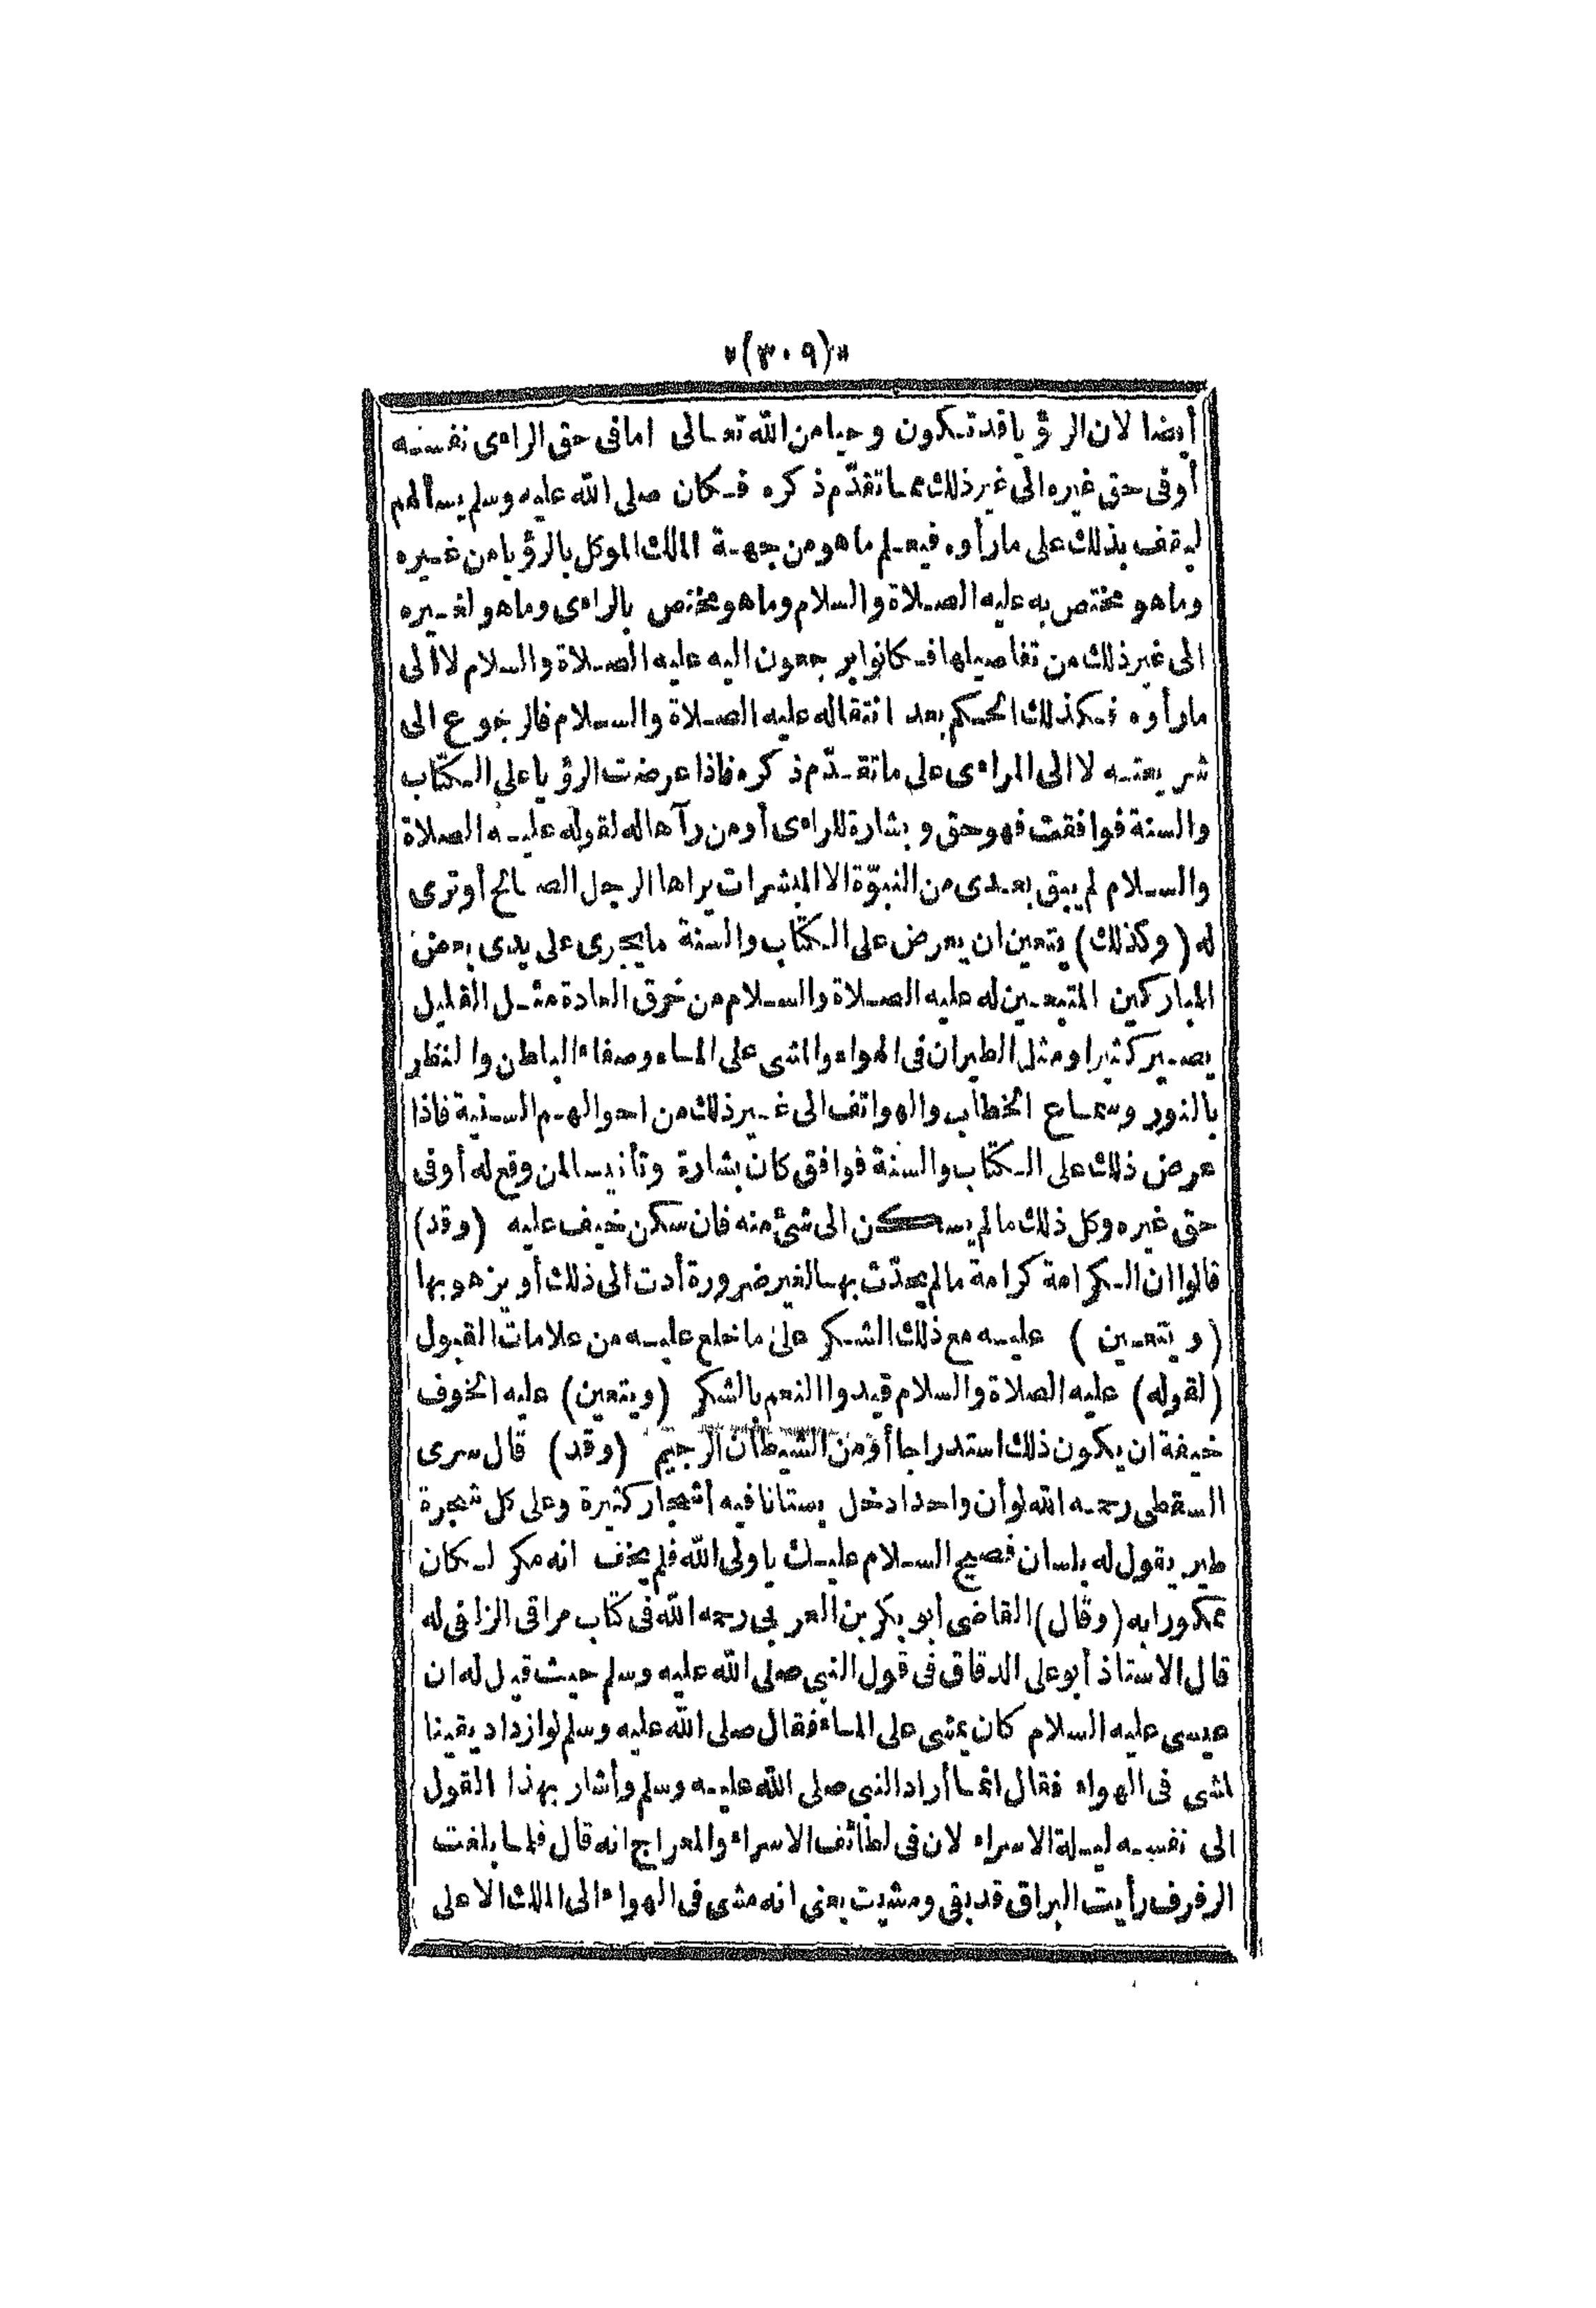 *(٣٠٩)*
أيضا لان الرؤيا قد تكون وحيا من الله تعالى اما فى حق الراءى نفسه
أو فى حق غيره الى غير ذلك مما تقدّم ذكره فكان صلى الله عليه وسلم يسألهم
ليقف بذلك على ما رأوه فيعلم ما هو من جهة الملك الموكل بالرؤيا من غيره
وما هو مختص به عليه الصلاة والسلام وما هو مختص بالراءى وما هو لغيره
الى غير ذلك من تفاصيلها فكانوا يرجعون اليه عليه الصلاة والسلام لا الى
ما رأوه فكذلك الحكم بعد انتقاله عليه الصلاة والسلام فالرجوع الى
شريعته لا الى المراءى على ما تقدّم ذكره فاذا عرضت الرؤيا على الكتاب
والسنة فوافقت فهو حق وبشارة للراءى أو من رآها له لقوله عليه الصلاة
والسلام لم يبق بعدى من النبوّة الا المبشرات يراها الرجل الصالح أو ترى
له (وكذلك) يتعين ان يعرض على الكتاب والسنة ما يجرى على يدى بعض
المباركين المتبعين له عليه الصلاة والسلام من خرق العادة مثل القليل
يصير كثيرا ومثل الطيران فى الهواء والمشى على الماء وصفاء الباطن والنظر
بالنور وسماع الخطاب والهواتف الى غير ذلك من احوالهم السنية فاذا
عرض ذلك على الكتاب والسنة فوافق كان بشارة وتأنيسا لمن وقع له أو فى
حق غيره وكل ذلك ما لم يسكن الى شئ منه فان سكن خيف عليه (وقد)
قالوا ان الكرامة كرامة ما لم يحدّث بها لغير ضرورة أدت الى ذلك أو يزهو بها
(ويتعين) عليه مع ذلك الشكر على ما خلع عليه من علامات القبول
(لقوله) عليه الصلاة والسلام قيدوا النعم بالشكر (ويتعين) عليه الخوف
خيفة ان يكون ذلك استدراجا أو من الشيطان الرجيم (وقد) قال سرى
السقطى رحمه الله لو أن واحدا دخل بستانا فيه أشجار كثيرة وعلى كل شجرة
طير يقول له بلسان فصيح السلام عليك يا ولى الله فلم يخف انه مكر لكان
ممكورا به (وقال) القاضى أبو بكر بن العربى رحمه الله فى كتاب مراقى الزلفى له
قال الاستاذ أبو على الدقاق فى قول النبى صلى الله عليه وسلم حيث قيل له ان
عيسى عليه السلام كان يمشى على الماء فقال صلى الله عليه وسلم لو ازداد يقينا
لمشى فى الهواء فقال انما أراد النبى صلى الله عليه وسلم وأشار بهذا القول
الى نفسه ليلة الاسراء لان فى لطائف الاسراء والمعراج انه قال فلما بلغت
الرفرف رأيت البراق قد بقى ومشيت يعنى انه مشى فى الهواء الى الملك الاعلى